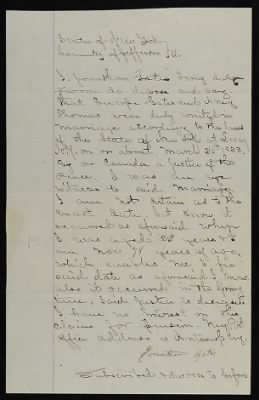 State of New York
County of Jefferson SS.
I, Jonathan Gates being duly
sworn do depose and say
that Europe Gates and Amy
Thomas were duly united in
marriage according to the laws
of the State of New York at
N.Y. on or about March 26" 1853.
by a Justice of the
Peace. I was an eye
witness to said marriage.
I am not certain as to the
exact date but know it
occurred as aforesaid when
I was aged 23 years &
am now years of age,
which enables me to fix
such date as aforesaid
also it occurred in the
time. Said Justice is deceased
I have no interest in the
claim for pension. My Post
office address is Antwerp N.Y.
Jonathan Gates
Subscribed & sworn to before